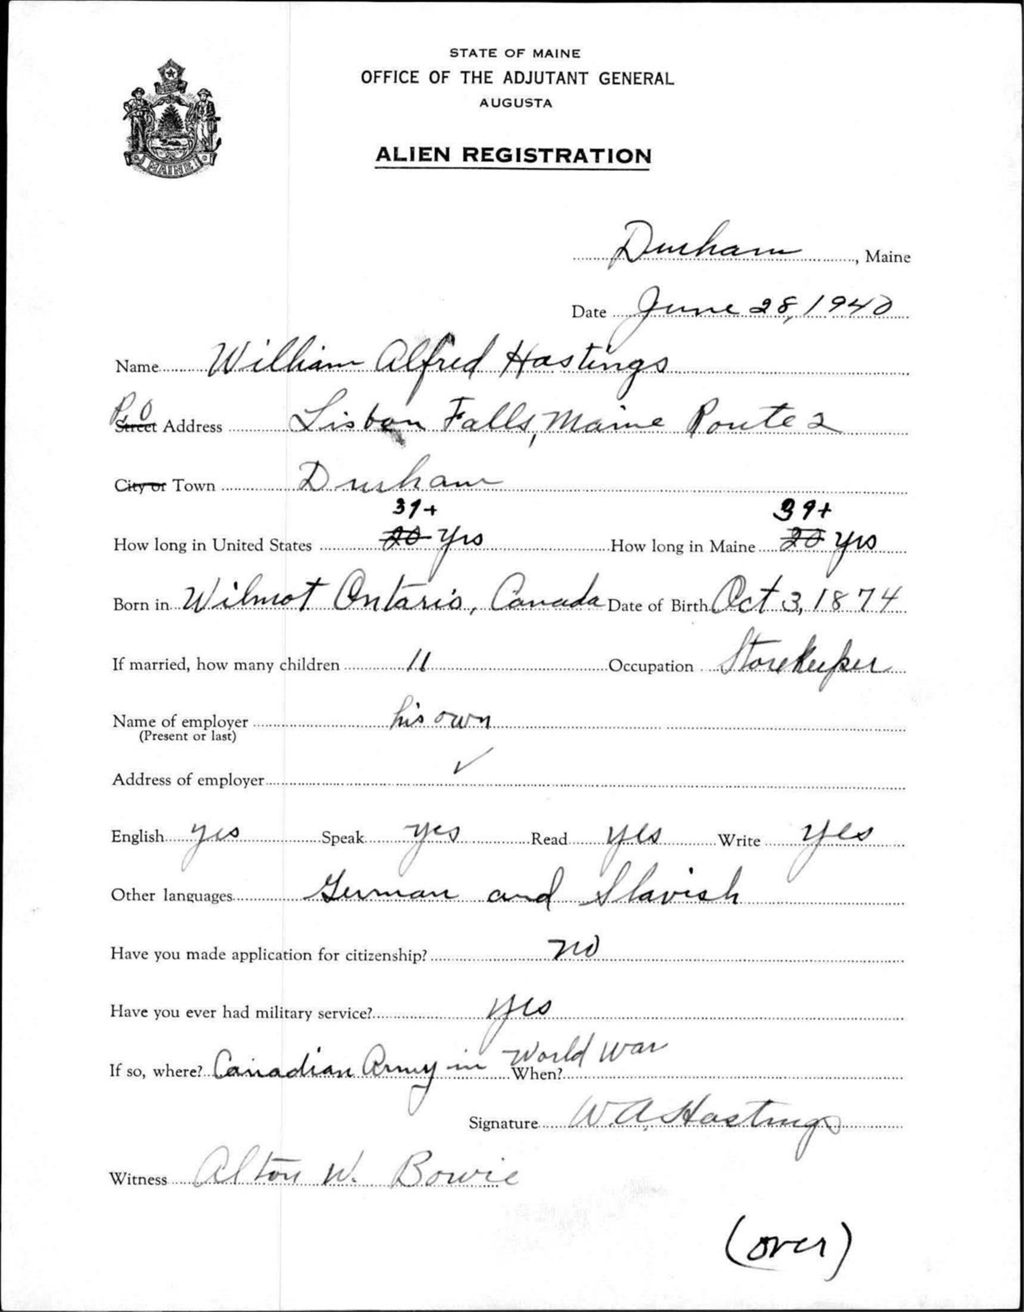 STATE OF MAINE
OFFICE OF THE ADJUTANT GENERAL
AUGUSTA
ALIEN REGISTRATION
MAINE
Durham, Maine
Date June 28, 1940
Name William Alfred Hastings
P.O
Street Address Lisbon Falls, Maine Route 2
City or Town Durham
39+ 39+
How long in United States 20 Yrs How long in Maine 20 yrs
Born in Wilmot Ontario, Canada Date of Birth Oct 3, 1874
If married, how many children 11 Occupation Storekeeper
Name of employer his own
(Present or last)
Address of employer ✓
English yes Speak yes Read yes Write yes
Other languages German and Slavish
Have you made application for citizenship? no
Have you ever had military service? yes
If so, where? Canadian Army in When? World War
Signature W. A. Hastings
Witness Alton W. Bowie
(over)